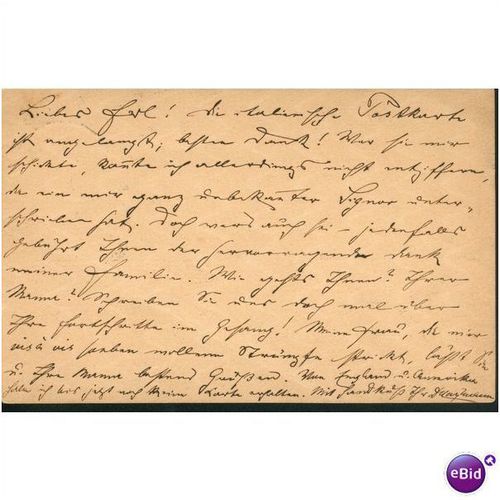 Liebes Frl! Die italienische Postkarte
ist angelangt; besten Dank! Wer sie mir
schickte, konnte ich allerdings nicht entziffern,
da ein mir ganz unbekannter Signor unter-
schrieben hat. Doch wers auch sei – jedenfalls
gebührt Ihnen der hervorragende Dank
meiner Familie. Wie gehts Ihnen? Ihrer
Mama? Schreiben Sie uns doch mal über
Ihre Fortschritte im Gesang! Meine Frau, die mir
vis à vis soeben wollene Strümpfe strickt, läßt Sie
u. Ihre Mama bestens Grüßen. Von England u. Amerika
habe ich bis jetzt noch keine Karte erhalten. Mit Handkuß Ihr
eBid